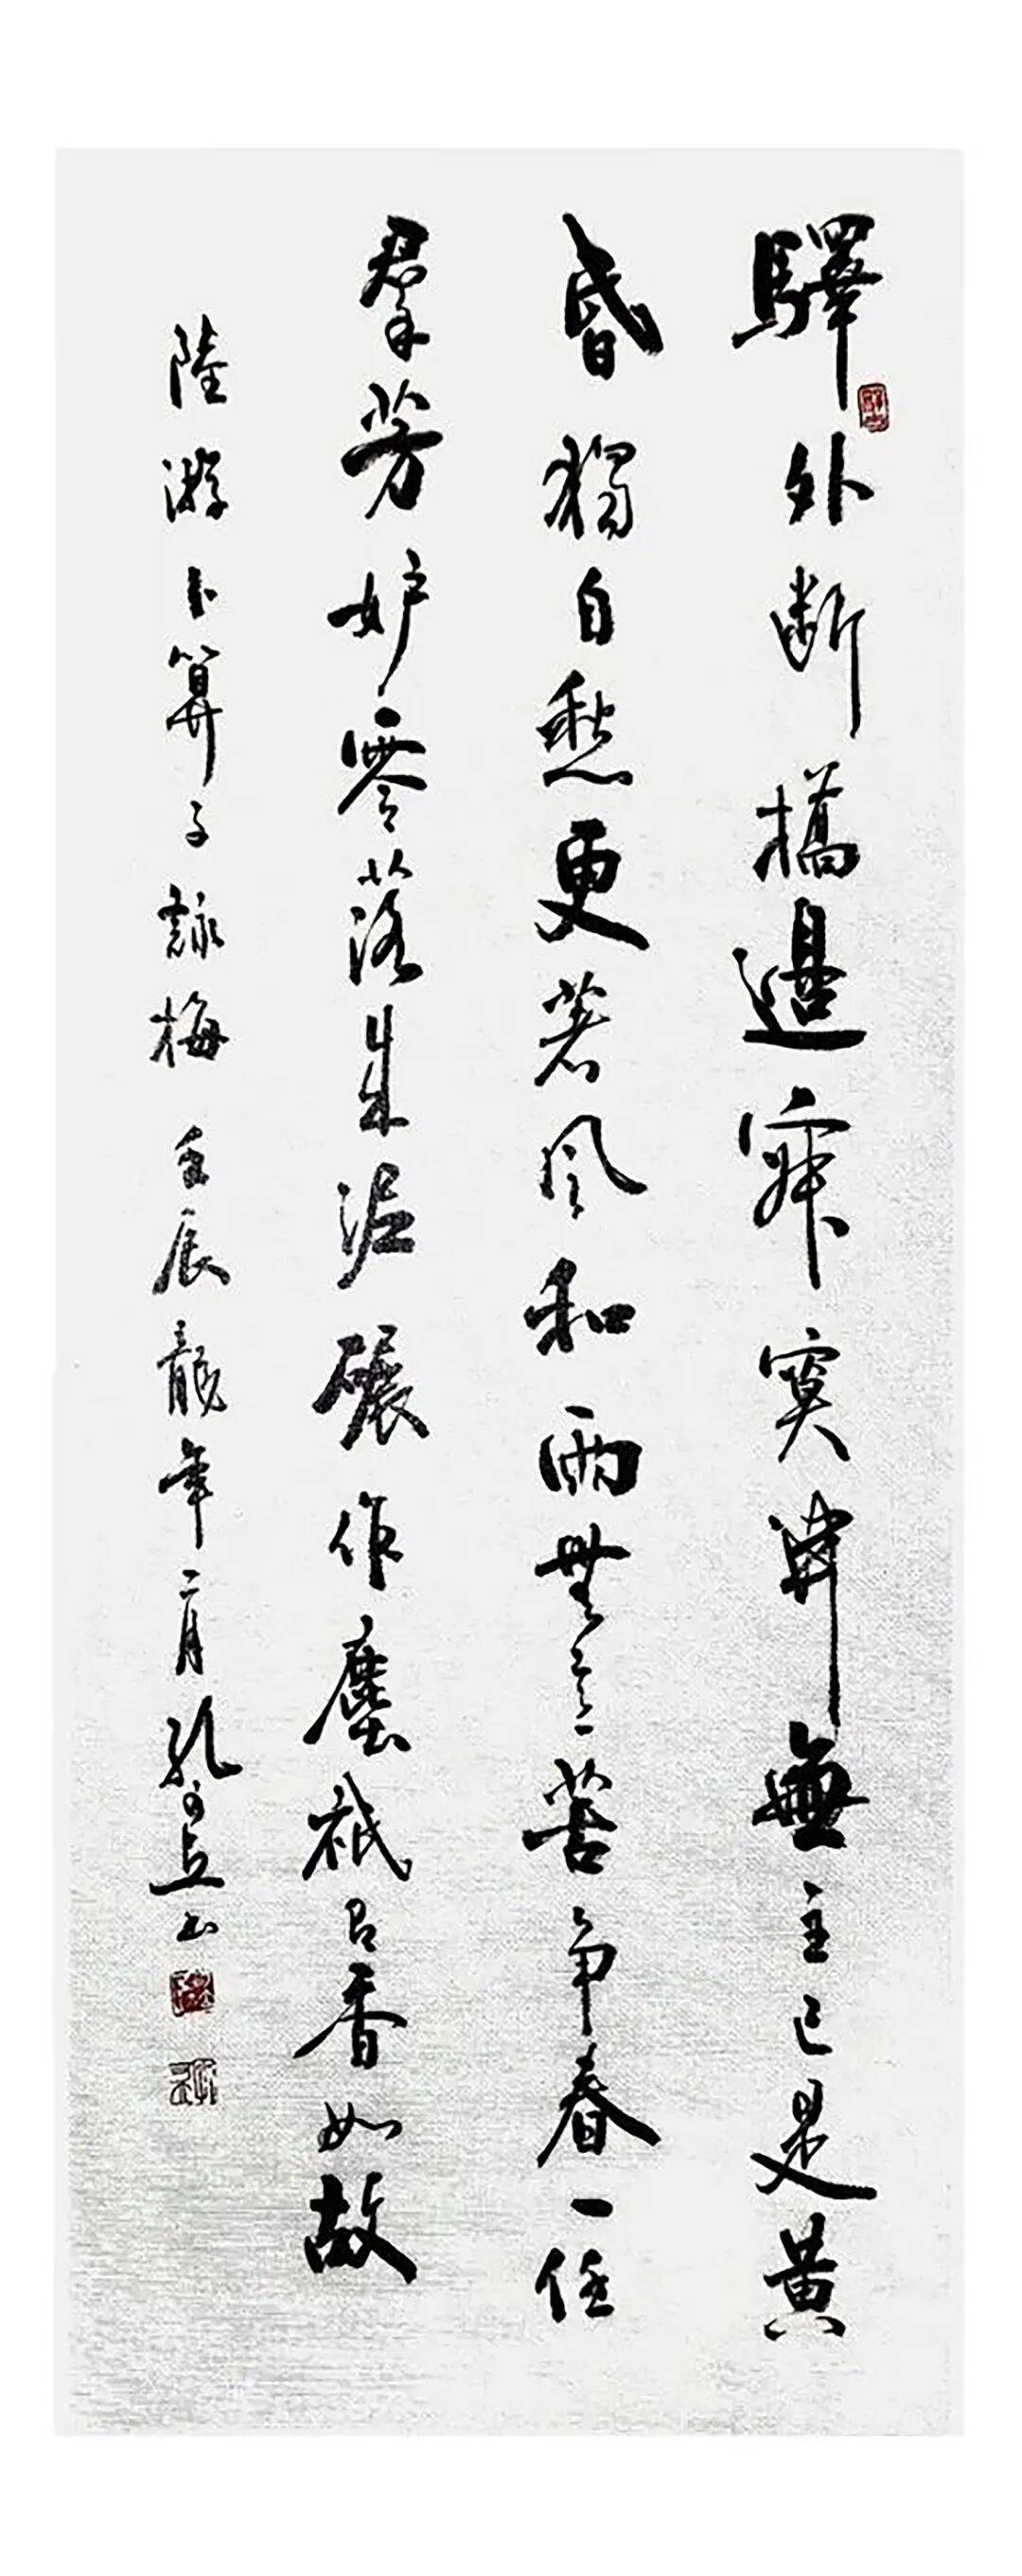 驛外斷橋邊寂寞開無主已是黃
昏獨自愁更著風和雨無意苦争春一任
羣芳妒零落成泥碾作塵祇有香如故
陸游卜算子詠梅 壬辰龍年二月孔可立书